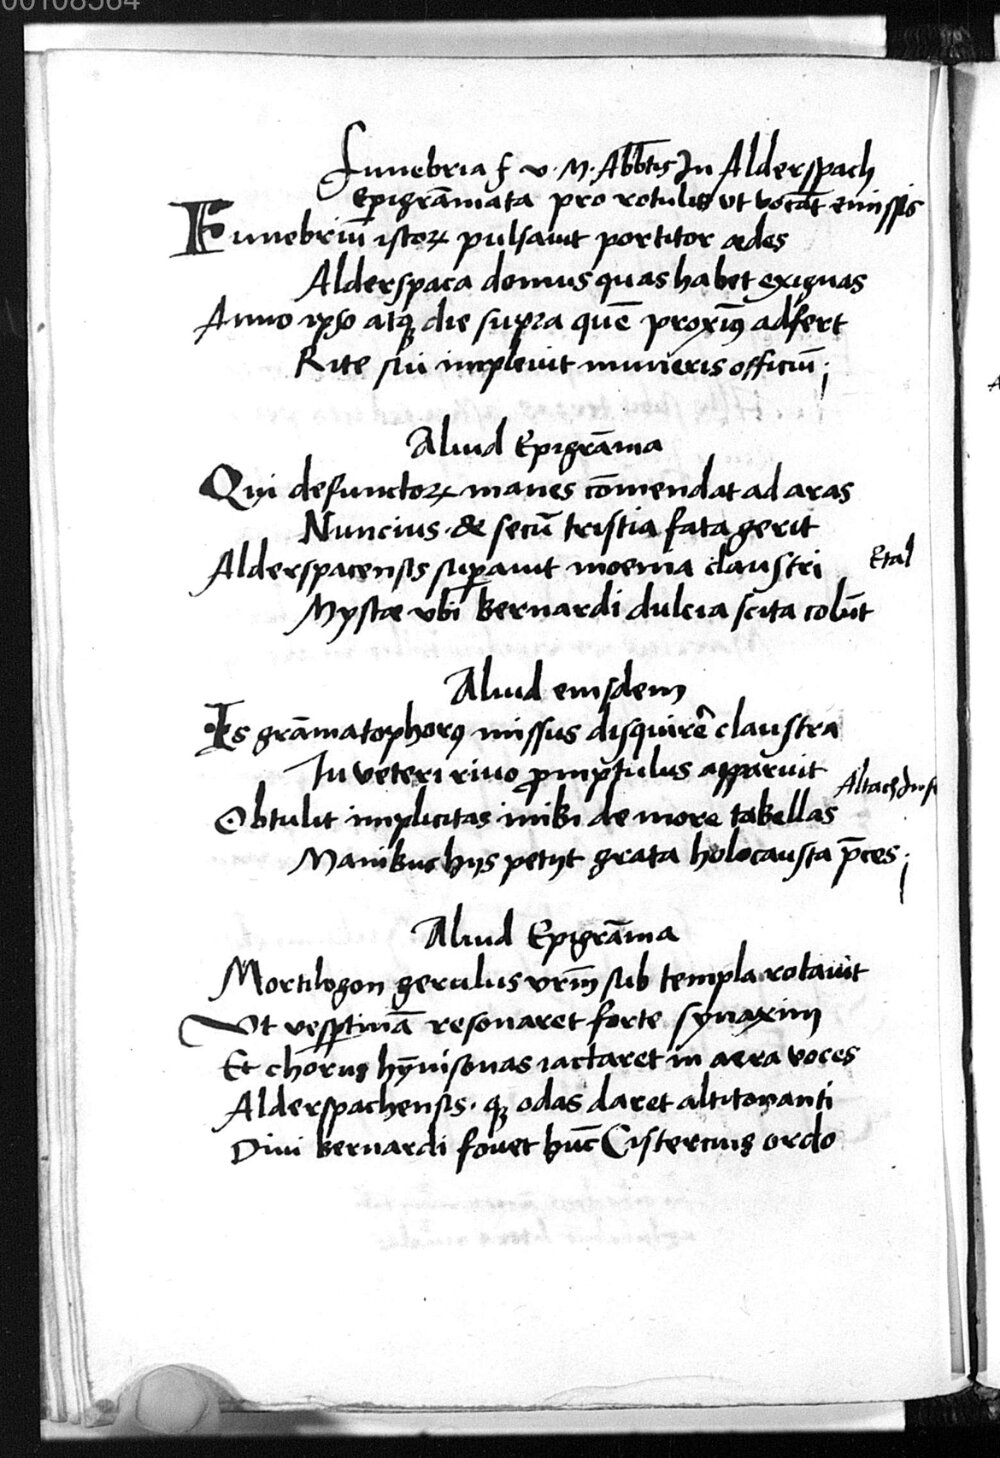 00108564
Funebria f. v. M. Abb̄tis In Alderspach
Epigrām̄ata pro rotulis vt vocāt emissis
Funebriū istoꝝ pulsauit portitor ædes
Alderspaca domus quas habet exiguas
Anno ipso atqꝫ die supra quē proximꝰ adfert
Rite sui impleuit muneris officiū;
Aliud Epigrāma
Qui defunctoꝝ manes cōmendat ad aras
Nuncius & secū tristia fata gerit
Alderspacensis suꝑauit moenia claustri
Etal
Mystæ vbi Bernardi dulcia scita colūt
Aliud eiusdem
Is grāmatophorꝰ missus disquirē claustra
In veteri riuo ꝓmptulus apparuit
Altach Inf
Obtulit implicitas mihi de more tabellas
Manibus hijs petijt grata holocausta p̄ces;
Aliud Epigrāma
Mortilogon gerulus vrm̄ sub templa rotauit
Vt vesꝑtinā resonaret forte synaxim
Et chorus hȳnisonas iactaret in aera voces
Alderspachensis. qꝫ odas daret altitonanti
Diui Bernardi fouet hūc Cisterciꝰ ordo